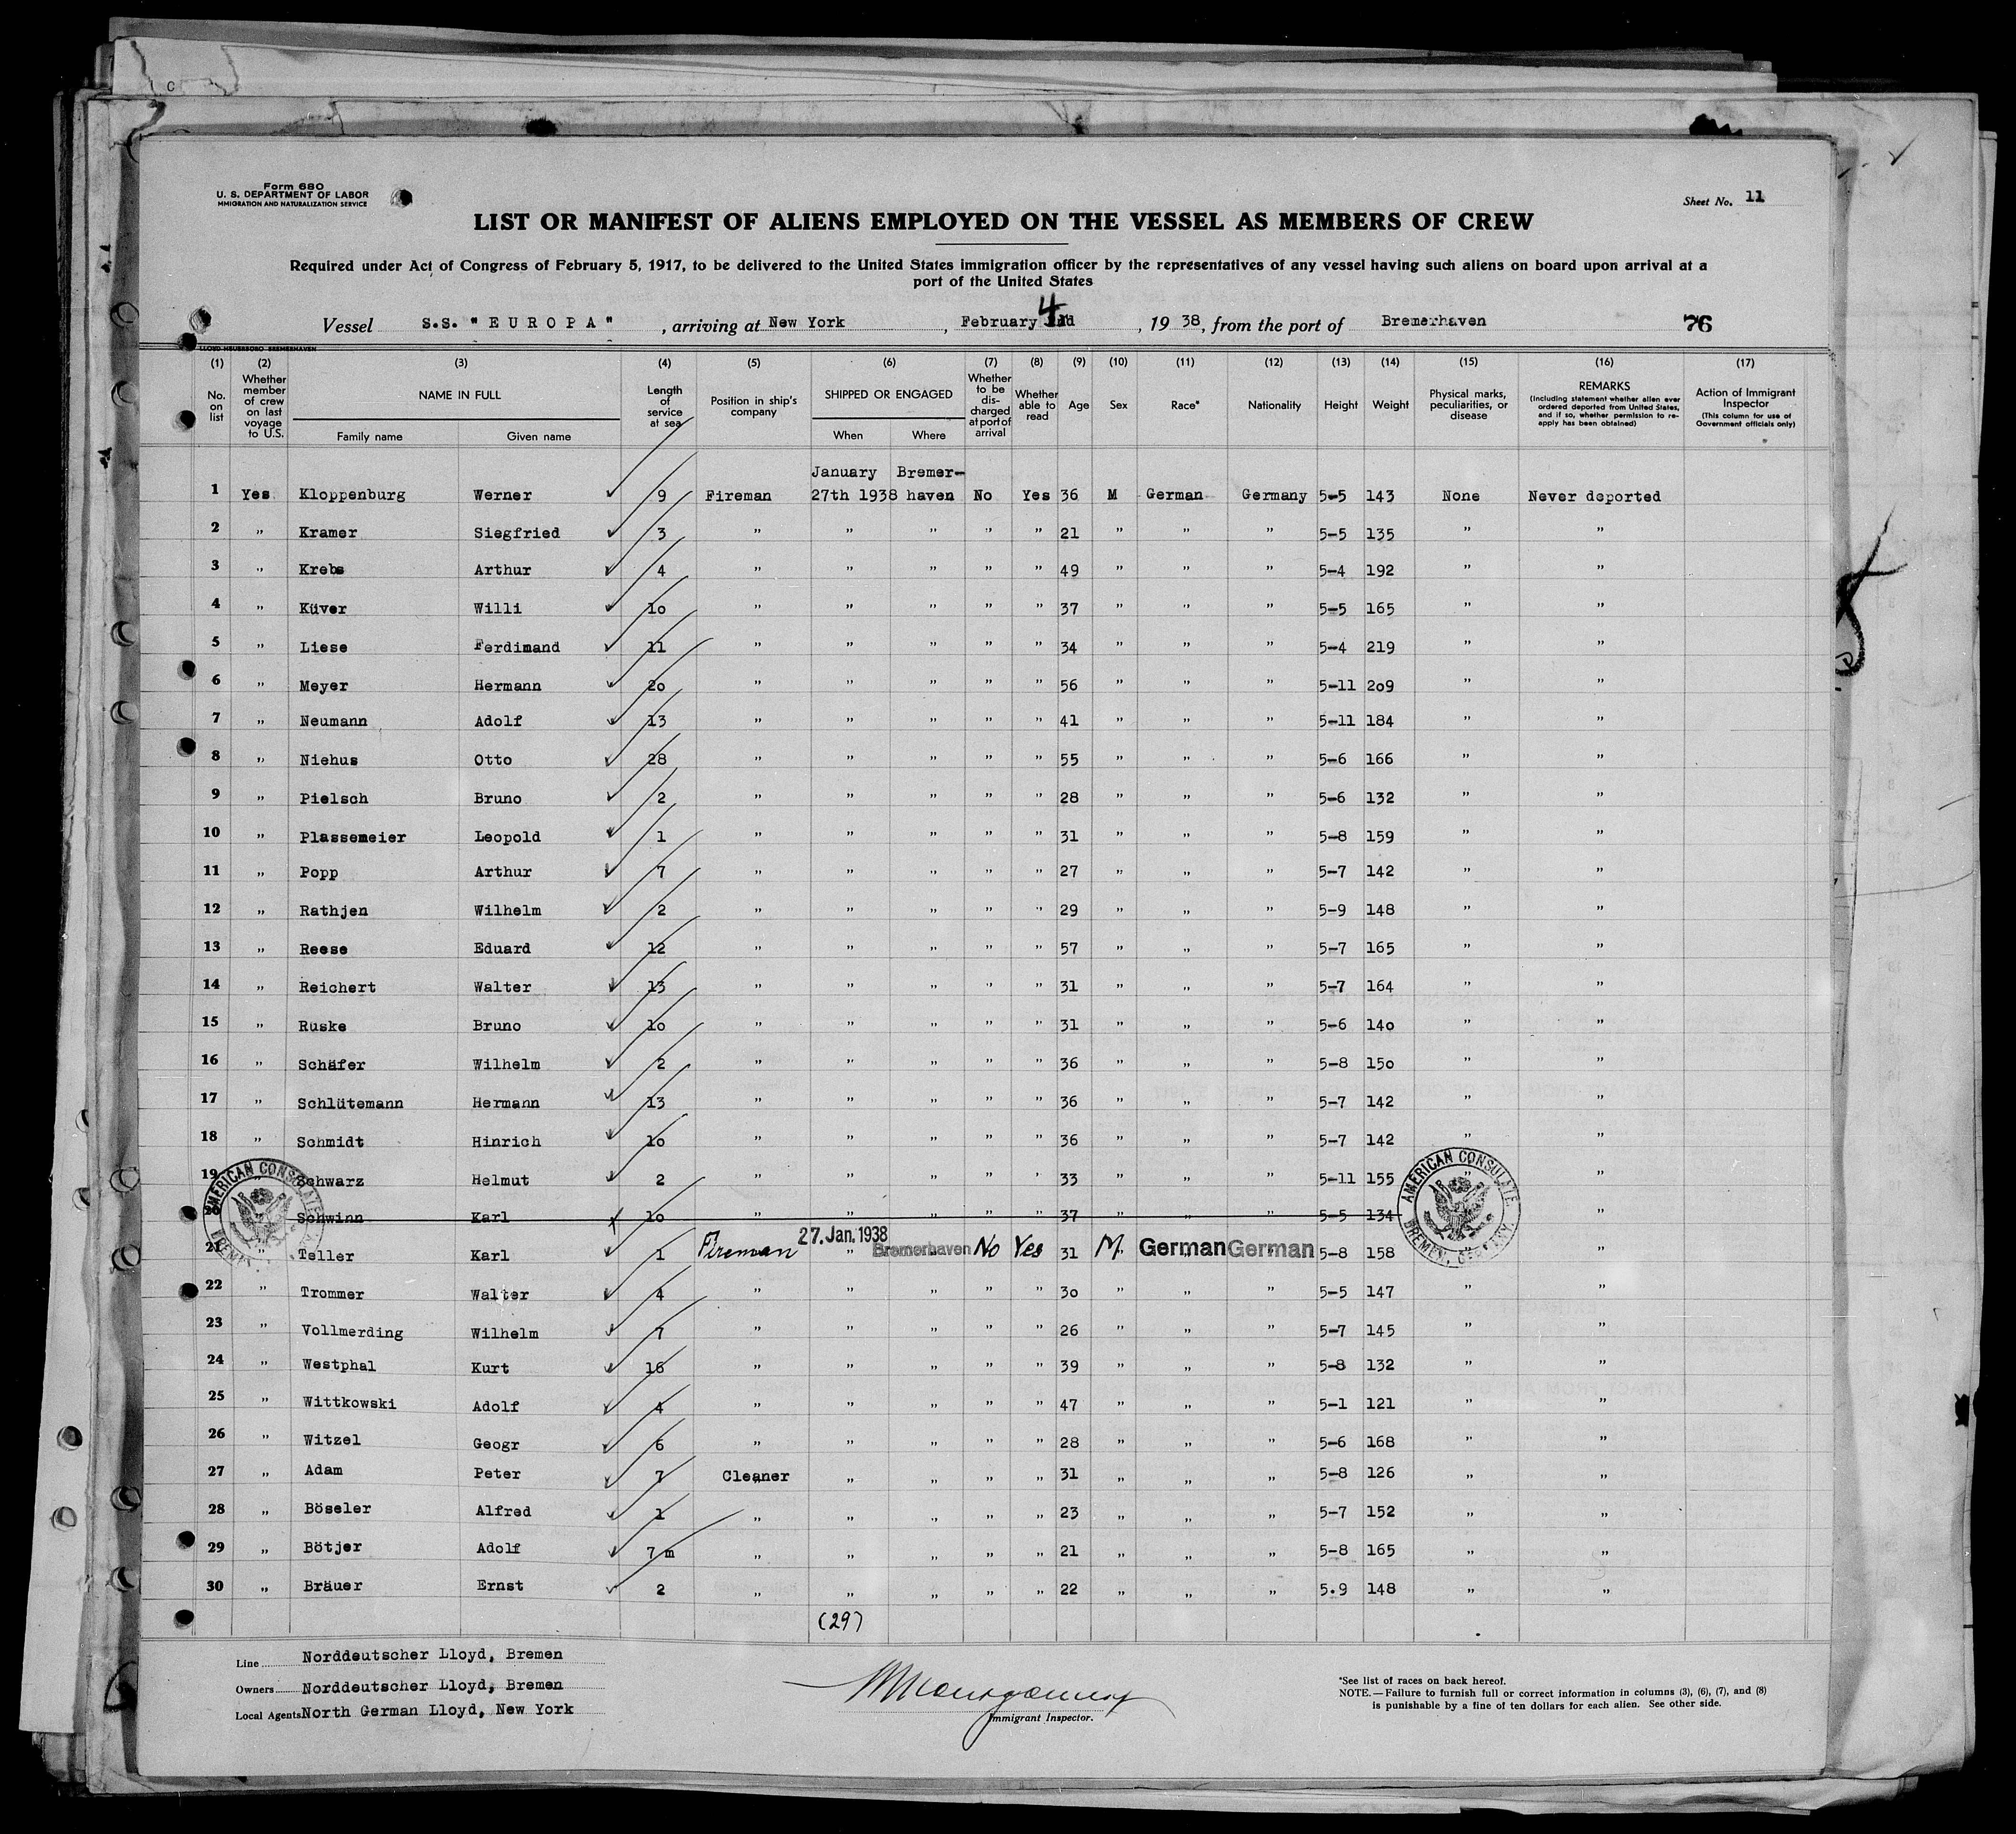 Form 680
U. S. DEPARTMENT OF LABOR
MMIGRATION AND NATURALIZATION SERVICE
Sheet No. 11
LIST OR MANIFEST OF ALIENS EMPLOYED ON THE VESSEL AS MEMBERS OF CREW
Required under Act of Congress of February 5, 1917, to be delivered to the United States immigration officer by the representatives of any vessel having such aliens on board upon arrival at a
port of the United States
Vessel S.S. "EUROPA", arriving at New York, February 4, 1938, from the port of Bremerhaven 76
(1) (2) (3) (4) (5) (6) (7) (8) (9) (10) (11) (12) (13) (14) (15) (16) (17)
No. on list Whether member of crew on last voyage to U.S. NAME IN FULL Family name Given name Length of service at sea Position in ship's company SHIPPED OR ENGAGED When Where Whether to be discharged at port of arrival Whether able to read Age Sex Race* Nationality Height Weight Physical marks, peculiarities, or disease REMARKS (Including statement whether alien ever ordered deported from United States, and if so, whether permission to reapply has been obtained) Action of Immigrant Inspector (This column for use of Government officials only)
January Bremer-
1 Yes Kloppenburg Werner 9 Fireman 27th 1938 haven No Yes 36 M German Germany 5-5 143 None Never deported
2 " Kramer Siegfried 3 " " " " " 21 " " " 5-5 135 " "
3 " Krebs Arthur 4 " " " " " 49 " " " 5-4 192 " "
4 " Küver Willi 10 " " " " " 37 " " " 5-5 165 " "
5 " Liese Ferdinand 11 " " " " " 34 " " " 5-4 219 " "
6 " Meyer Hermann 20 " " " " " 56 " " " 5-11 209 " "
7 " Neumann Adolf 13 " " " " " 41 " " " 5-11 184 " "
8 " Niehus Otto 28 " " " " " 55 " " " 5-6 166 " "
9 " Pielsch Bruno 2 " " " " " 28 " " " 5-6 132 " "
10 " Plassemeier Leopold 1 " " " " " 31 " " " 5-8 159 " "
11 " Popp Arthur 7 " " " " " 27 " " " 5-7 142 " "
12 " Rathjen Wilhelm 2 " " " " " 29 " " " 5-9 148 " "
13 " Reese Eduard 12 " " " " " 57 " " " 5-7 165 " "
14 " Reichert Walter 13 " " " " " 31 " " " 5-7 164 " "
15 " Ruske Bruno 10 " " " " " 31 " " " 5-6 140 " "
16 " Schäfer Wilhelm 2 " " " " " 36 " " " 5-8 150 " "
17 " Schlütemann Hermann 13 " " " " " 36 " " " 5-7 142 " "
18 " Schmidt Hinrich 10 " " " " " 36 " " " 5-7 142 " "
19 " Schwarz Helmut 2 " " " " " 33 " " " 5-11 155 " "
Schwinn Karl 10 " " " " " 37 " " " 5-5 134 "
21 " Teller Karl 1 Fireman 27. Jan. 1938 Bremerhaven No Yes 31 M. German German 5-8 158 " "
AMERICAN CONSULATE BREMEN, GERMANY.
AMERICAN CONSULATE BREMEN, GERMANY.
22 " Trommer Walter 4 " " " " " 30 " " " 5-5 147 " "
23 " Vollmerding Wilhelm 7 " " " " " 26 " " " 5-7 145 " "
24 " Westphal Kurt 16 " " " " " 39 " " " 5-8 132 " "
25 " Wittkowski Adolf 4 " " " " " 47 " " " 5-1 121 " "
26 " Witzel Geogr 6 " " " " " 28 " " " 5-6 168 " "
27 " Adam Peter 7 Cleaner " " " " 31 " " " 5-8 126 " "
28 " Böseler Alfred 1 " " " " " 23 " " " 5-7 152 " "
29 " Bötjer Adolf 7 m " " " " " 21 " " " 5-8 165 " "
30 " Bräuer Ernst 2 " " " " " 22 " " " 5.9 148 " "
(29)
Line Norddeutscher Lloyd, Bremen
Owners Norddeutscher Lloyd, Bremen
Local Agents North German Lloyd, New York
Immigrant Inspector.
*See list of races on back hereof.
NOTE.—Failure to furnish full or correct information in columns (3), (6), (7), and (8)
is punishable by a fine of ten dollars for each alien. See other side.